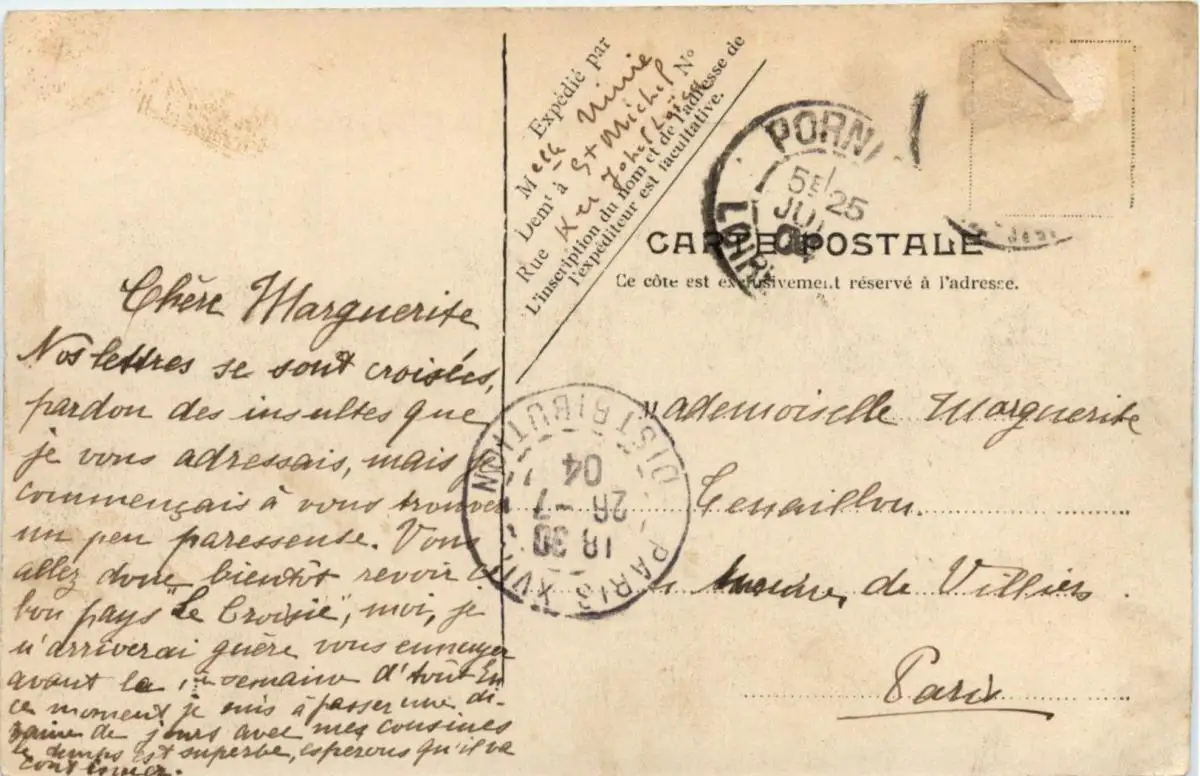 Chère Marguerite
Nos lettres se sont croisées,
pardon des insultes que
je vous adressais, mais je
commençais à vous trouver
un peu paresseuse. Vous
allez donc bientôt revoir ce
bon pays "Le Croisic", moi, je
n'arriverai guère vous ennuyer
avant la 1re semaine d'Août En
ce moment je suis à passer une di-
zaine de jours avec mes cousines
le temps est superbe, espérons qu'il va
continuer.
Expédié par
Melle Ninie
Demt à St Michel
Rue Ker N°
L'inscription du nom et de l'adresse de
l'expéditeur est facultative.
PORNI
5E 25
JUI
LOIRE
CARTE POSTALE
Ce côte est exclusivement réservé à l'adresse.
PARIS XVII DISTRIBUTION
18 30
26 - 7
04
Mademoiselle Marguerite
Tenaillon.
de Villiers
Paris